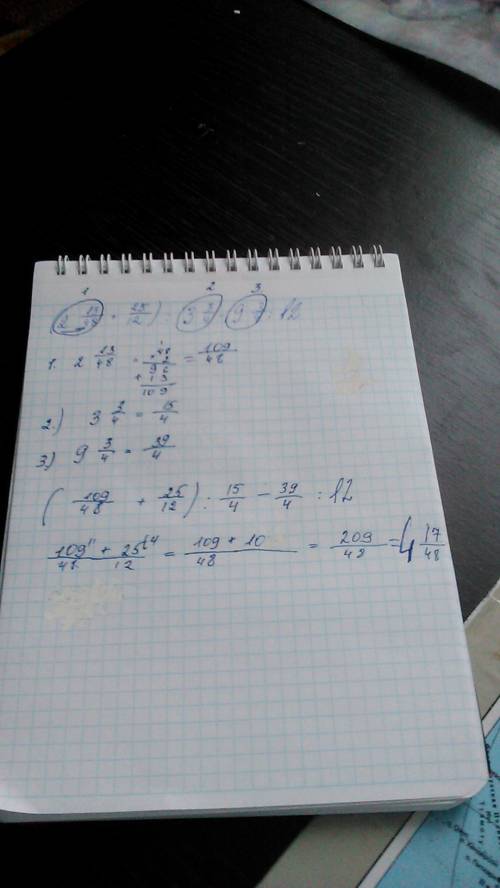 1 2 3
(2 13/48 + 25/12) : 3 3/4 - 9 3/4 : 12
1. 2 13/48 = 109/48
48
2
96
+ 13
109
2.) 3 3/4 = 15/4
3) 9 3/4 = 39/4
(109/48 + 25/12) : 15/4 - 39/4 : 12
109/48 + 25/12 = 109 + 10/48 = 209/48 = 4 17/48